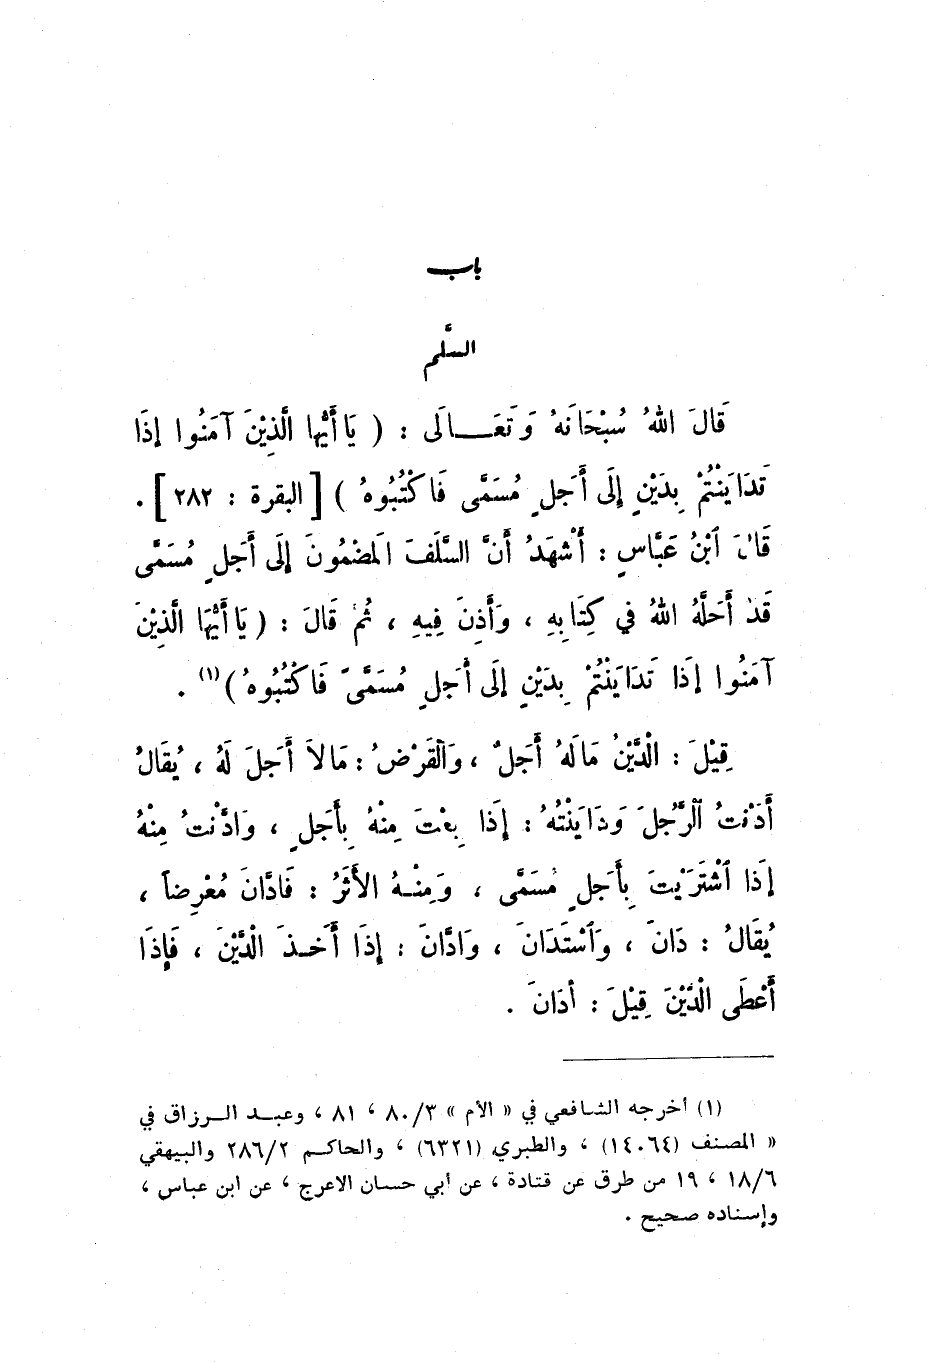 باب
السَّلَم
قَالَ اللهُ سُبْحَانَهُ وَتَعَــالَى : ( يَا أَيُّها الَّذِيْنَ آمَنُوا إذَا
تَدَايَنْتُمْ بِدَيْنٍ إِلَى أَجَلٍ مُسَمَّى فَاكْتُبُوهُ ) [ البقرة : ٢٨٢ ] .
قَالَ ٱبْنُ عَبَّاسٍ : أَشْهَدُ أَنَّ السَّلَفَ الَمضْمُونَ إِلَى أَجَلٍ مُسَمَّى
قَدْ أَحَلَّهُ اللهُ في كِتَابِهِ ، وَأَذِنَ فِيهِ ، ثُمَّ قَالَ : ( يَا أَيُّهَا الَّذِيْنَ
آمَنُوا إذَا تَدَايَنْتُمْ بِدَيْنٍ إِلَى أَجَلٍ مُسَمَّىً فَاكْتُبُوهُ )(١) .
قِيْلَ : الْدَّيْنُ مَا لَهُ أَجَلٌ ، وَٱلقَرْضُ : مَا لاَ أَجَلَ لَهُ ، يُقَالُ
أَدَنْتُ ٱلرَّجُلَ وَدَايَنْتُهُ : إِذَا بِعْتَ مِنْهُ بِأَجَلٍ ، وَادَّنْتُ مِنْهُ
إِذَا ٱشْتَرَيْتَ بِأَجَلٍ مُسَمَّى ، وَمِنْـهُ الأَثَرُ : فَادَّانَ مُعْرِضاً ،
يُقَالُ : دَانَ ، وَٱسْتَدَانَ ، وَادَّانَ : إِذَا أَخَـذَ الْدَّيْنَ ، فَإِذَا
أَعْطَى الْدَّيْنَ قِيْلَ : أدَانَ .
(١) أخرجه الشافعي في « الأم » ٨٠/٣ ، ٨١ ، وعبـد الـرزاق في
« المصنف (١٤٠٦٤) ، والطبري (٦٣٢١) ، والحاكـم ٢٨٦/٢ والبيهقي
١٨/٦ ، ١٩ من طرق عن قتادة ، عن أبي حسان الاعرج ، عن ابن عباس ،
وإسناده صحيح .